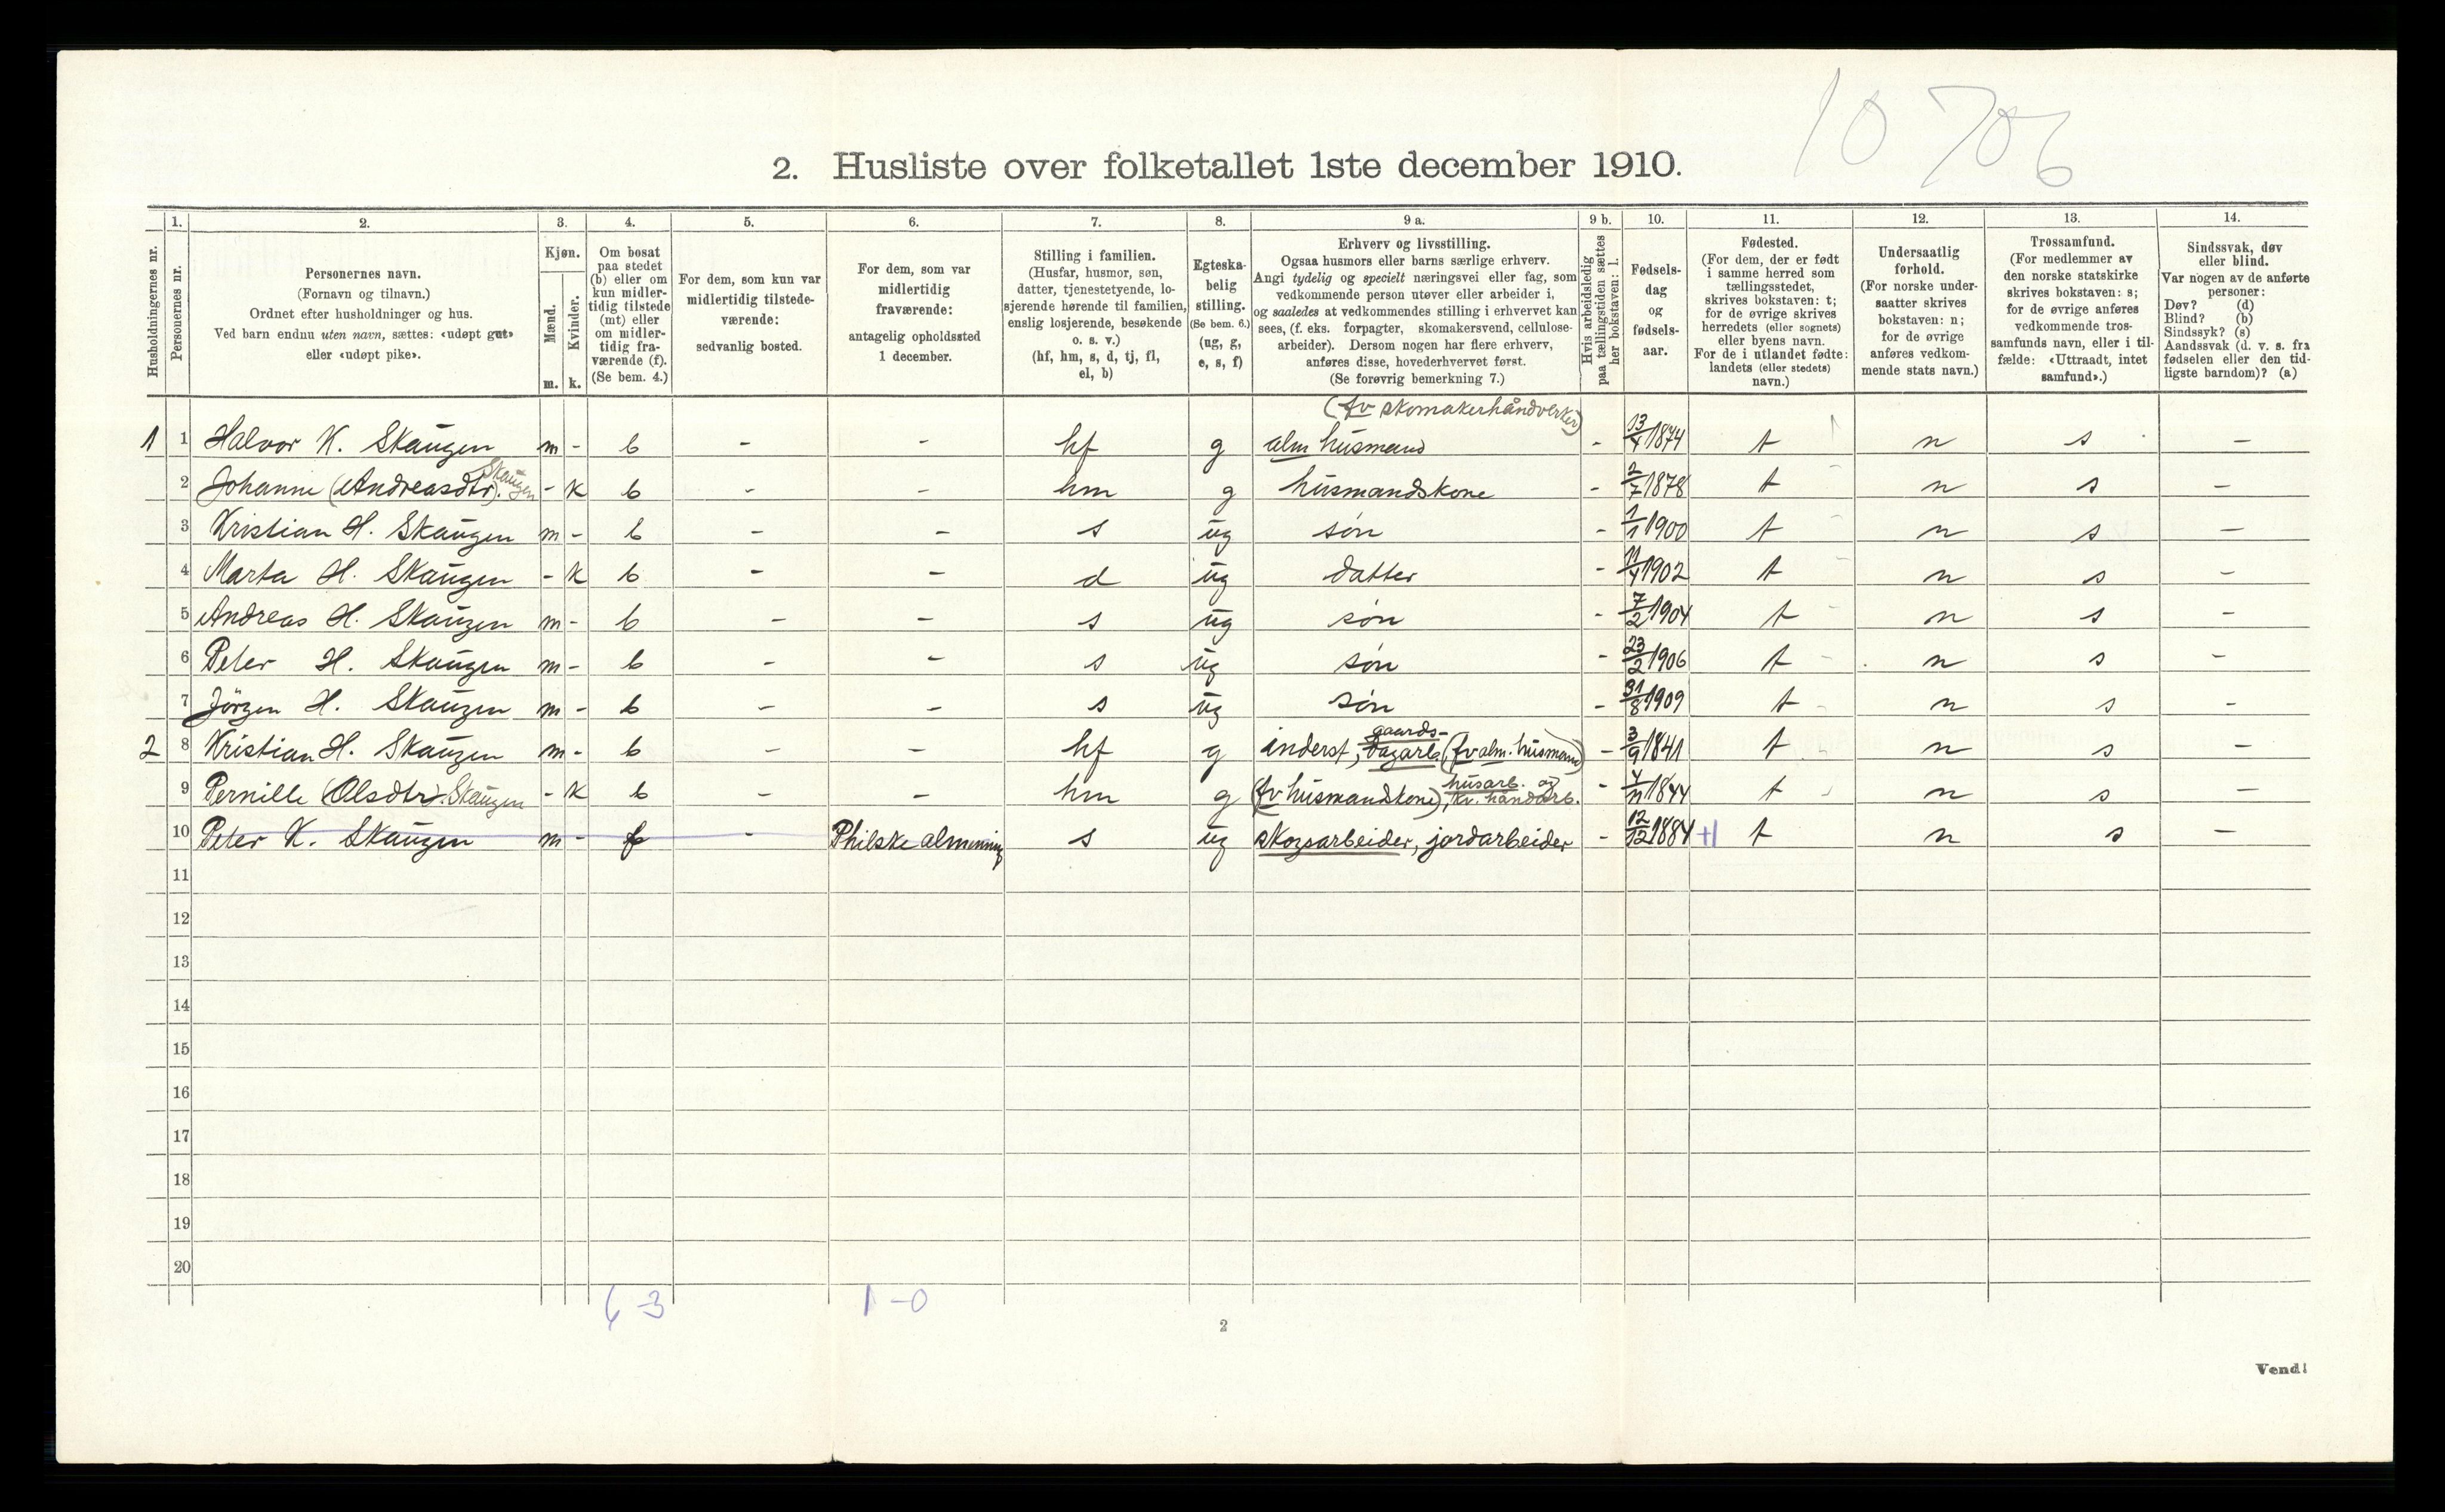 10 706
2. Husliste over folketallet 1ste december 1910.
Husholdningernes nr.
1.
Personernes nr.
2.
Personernes navn.
(Fornavn og tilnavn.)
Ordnet efter husholdninger og hus.
Ved barn endnu uten navn, sættes: «udøpt gut»
eller «udøpt pike».
3.
Kjøn.
Mænd.
m.
Kvinder.
k.
4.
Om bosat
paa stedet
(b) eller om
kun midler-
tidig tilstede
(mt) eller
om midler-
tidig fra-
værende (f).
(Se bem. 4.)
5.
For dem, som kun var
midlertidig tilstede-
værende:
sedvanlig bosted.
6.
For dem, som var
midlertidig
fraværende:
antagelig opholdssted
1 december.
7.
Stilling i familien.
(Husfar, husmor, søn,
datter, tjenestetyende, lo-
sjerende hørende til familien,
enslig losjerende, besøkende
o. s. v.)
(hf, hm, s, d, tj, fl,
el, b)
8.
Egteska-
belig
stilling.
(Se bem. 6.)
(ug, g,
e, s, f)
9 a.
Erhverv og livsstilling.
Ogsaa husmors eller barns særlige erhverv.
Angi tydelig og specielt næringsvei eller fag, som
vedkommende person utøver eller arbeider i,
og saaledes at vedkommendes stilling i erhvervet kan
sees, (f. eks. forpagter, skomakersvend, cellulose-
arbeider). Dersom nogen har flere erhverv,
anføres disse, hovederhvervet først.
(Se forøvrig bemerkning 7.)
9 b.
Hvis arbeidsledig
paa tællingstiden sættes
her bokstaven: l.
10.
Fødsels-
dag
og
fødsels-
aar.
11.
Fødested.
(For dem, der er født
i samme herred som
tællingsstedet,
skrives bokstaven: t;
for de øvrige skrives
herredets (eller sognets)
eller byens navn.
For de i utlandet fødte:
landets (eller stedets)
navn.)
12.
Undersaatlig
forhold.
(For norske under-
saatter skrives
bokstaven: n;
for de øvrige
anføres vedkom-
mende stats navn.)
13.
Trossamfund.
(For medlemmer av
den norske statskirke
skrives bokstaven: s;
for de øvrige anføres
vedkommende tros-
samfunds navn, eller i til-
fælde: «Uttraadt, intet
samfund».)
14.
Sindssvak, døv
eller blind.
Var nogen av de anførte
personer:
Døv? (d)
Blind? (b)
Sindssyk? (s)
Aandssvak (d. v. s. fra
fødselen eller den tid-
ligste barndom)? (a)
(fv skomakerhåndverker)
1 1 Halvor K. Skaugen m - b - - hf g alm husmand - 13/4 1874 t n s -
2 Johanne (Andreasdtr). Skaugen - k b - - hm g husmandskone - 2/7 1878 t n s -
3 Kristian H. Skaugen m - b - - s ug søn - 1/1 1900 t n s -
4 Marta H. Skaugen - k b - - d ug datter - 11/4 1902 t n s -
5 Andreas H. Skaugen m - b - - s ug søn - 7/2 1904 t n s -
6 Peter H. Skaugen m - b - - s ug søn - 23/2 1906 t n s -
7 Jörgen H. Skaugen m - b - - s ug søn - 31/8 1909 t n s -
2 8 Kristian H. Skaugen m - b - - hf g inderst, gaards- dagarb. (fv alm. husmann) - 3/9 1841 t n s -
9 Pernille (Olsdtr). Skaugen - k b - - hm g (fv husmandskone), husarb. og kv. håndarb. - 4/11 1844 t n s -
10 Peter K. Skaugen m - f - Philske almenning s ug skogsarbeider, jordarbeider - 12/12 1884 +1 t n s -
11
12
13
14
15
16
17
18
19
20
6 - 3 1 - 0
2
Vend!